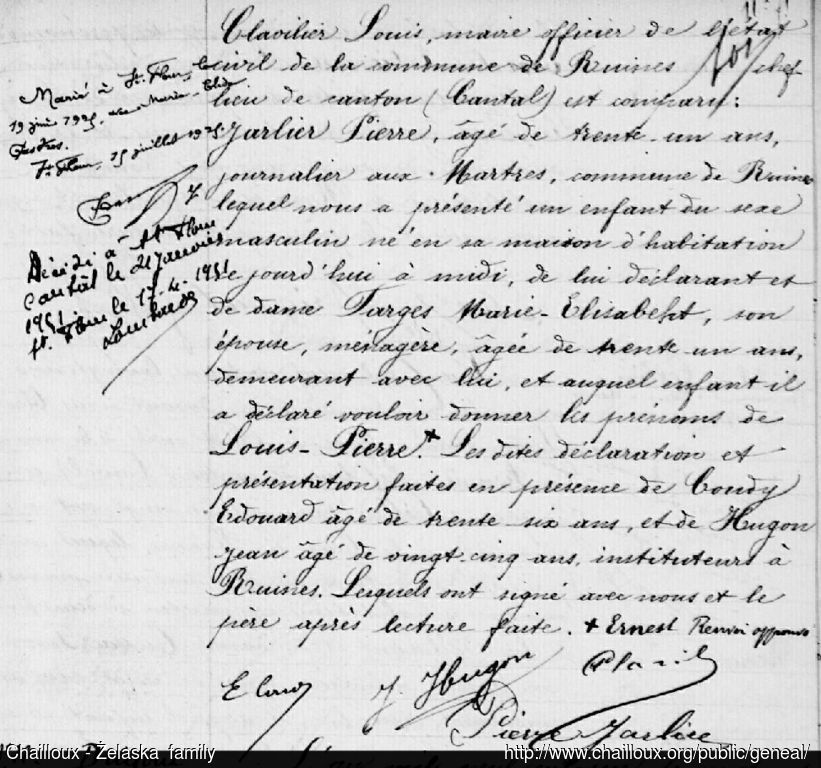 Clavilier Louis, maire officier de l'état
civil de la commune de Ruines chef
lieu de canton (Cantal) est comparu:
Jarlier Pierre, âgé de trente-un ans,
journalier aux Martres, commune de Ruines
lequel nous a présenté un enfant du sexe
masculin né en sa maison d'habitation
ce jourd'hui à midi, de lui déclarant et
de dame Farges Marie-Elisabeht, son
épouse, ménagère, âgée de trente un ans,
demeurant avec lui, et auquel enfant il
a déclaré vouloir donner les prénoms de
Louis-Pierre.+ Les dites déclaration et
présentation faites en présence de Coudy
Edouard âgé de trente-six ans, et de Hugon
Jean âgé de vingt-cinq ans, instituteurs à
Ruines. Lesquels ont signé avec nous et le
père après lecture faite. + Ernest Renvoi approuvé
Marié à St Flour, le
19 juin 1925, avec Marie-
St Flour, 15 juillet 1925.
Décédé à St Flour
Cantal le 21 Janvier
1951.
St. Flour le 17.4.1951
E Coudy J. Hugon
Pierre Jarlier
Chailloux - Želaska family
http://www.chailloux.org/public/geneal/